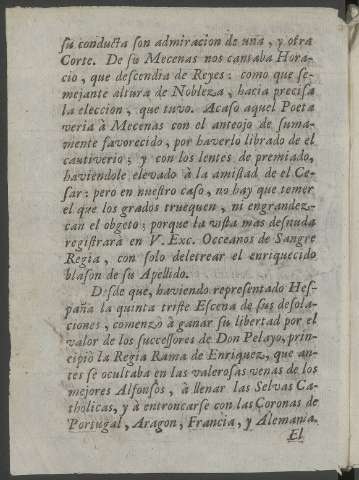 su conducta son admiracion de una, y otra
Corte. De su Mecenas nos cantaba Hora-
cio, que descendia de Reyes: como que se-
mejante altura de Nobleza, hacia precisa
la eleccion, que tuvo. Acaso aquel Poeta
veria à Mecenas con el anteojo de suma-
mente favorecido, por haverlo librado de el
cautiverio; y con los lentes de premiado,
haviendole elevado à la amistad de el Ce-
sar: pero en nuestro caso, no hay que temer
el que los grados truequen, ni engrandez-
can el obgeto; porque la vista mas desnuda
registrarà en V. Exc. Occeanos de Sangre
Regia, con solo deletrear el enriquecido
blason de su Apellido.
Desde que, haviendo representado Hes-
paña la quinta triste Escena de sus desola-
ciones, comenzò à ganar su libertad por el
valor de los successores de Don Pelayo, prin-
cipiò la Regia Rama de Enriquez, que an-
tes se ocultaba en las valerosas venas de los
mejores Alfonsos, à llenar las Selvas Ca-
tholicas, y à entroncarse con las Coronas de
Portugal, Aragon, Francia, y Alemania.
El